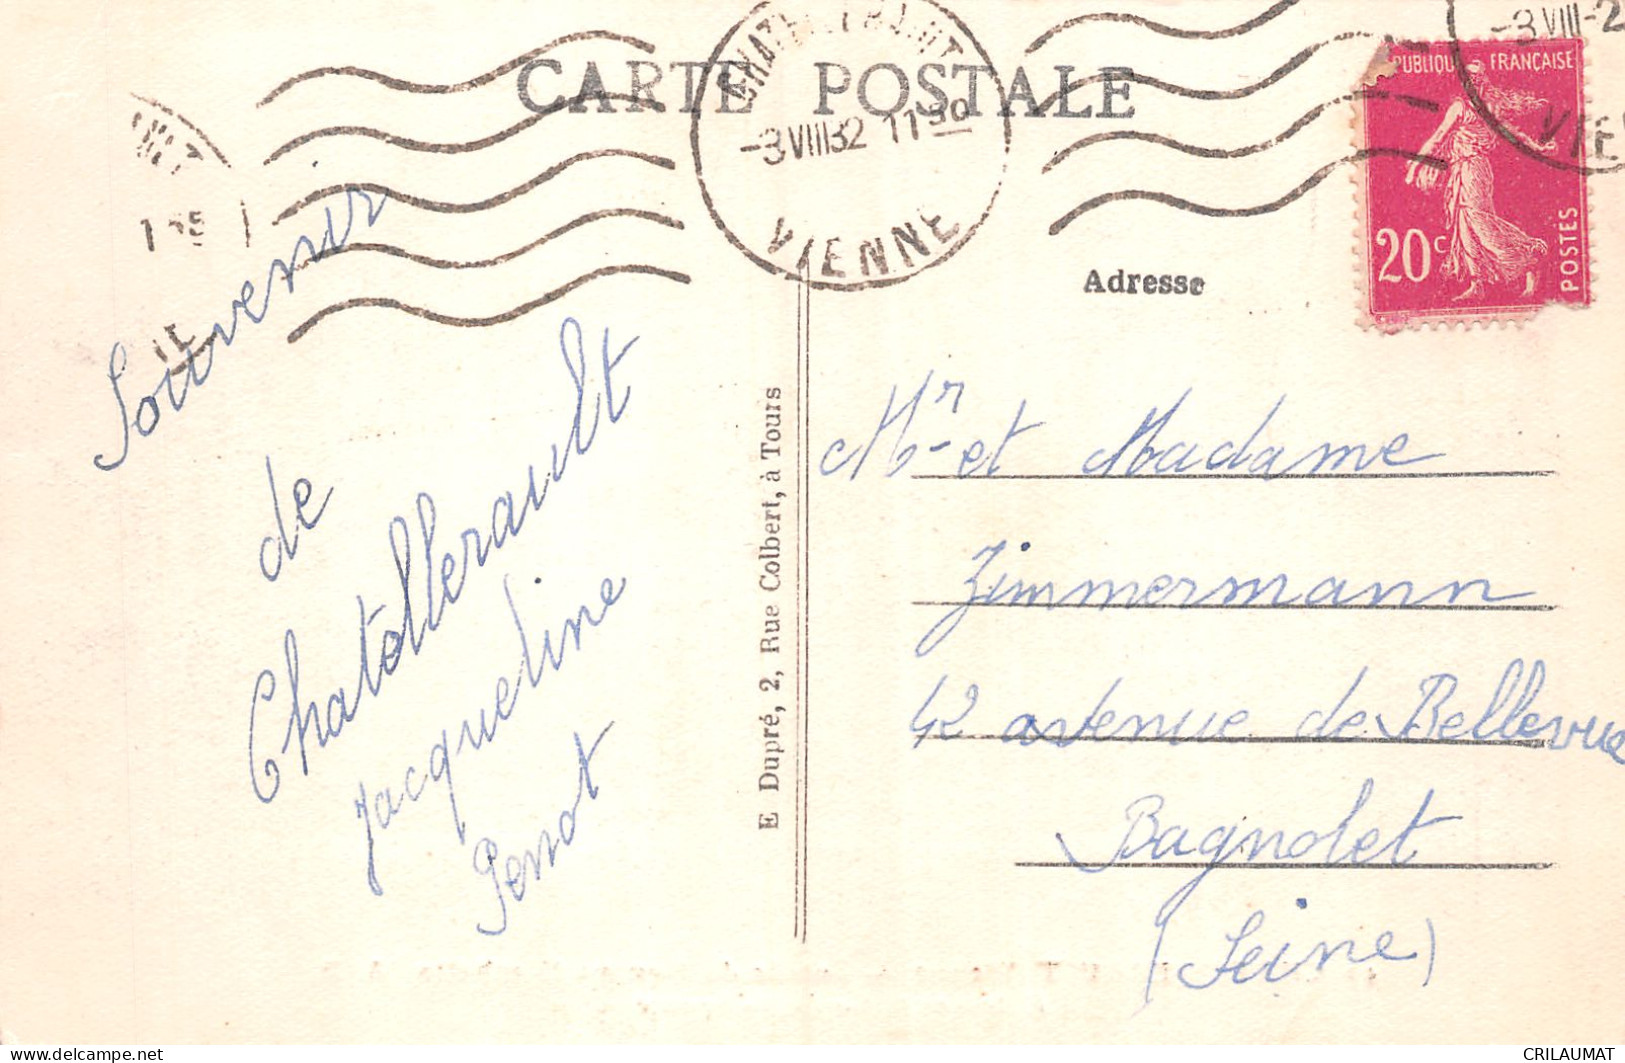 CARTE POSTALE
CHATELLERAULT
-3 VIII 32 11 30
VIENNE
-3 VIII-2
RÉPUBLIQUE FRANÇAISE
20c
POSTES
Adresse
Souvenir
de
Chatellerault
Jacqueline
E Dupré, 2, Rue Colbert, à Tours
Mr et Madame
Zimmermann
42 avenue de Bellevue
Bagnolet
(Seine)
CRILAUMAT